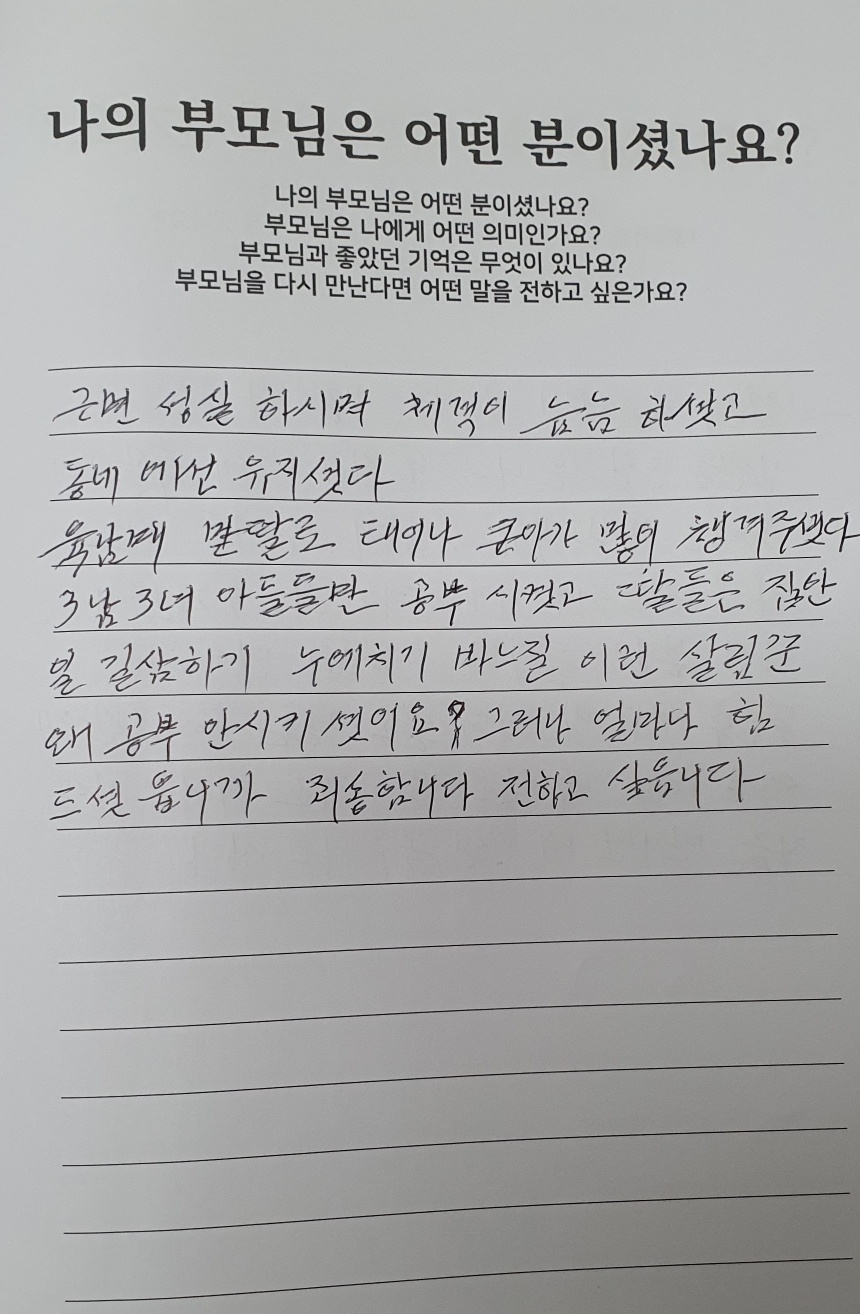 나의 부모님은 어떤 분이셨나요?
나의 부모님은 어떤 분이셨나요?
부모님은 나에게 어떤 의미인가요?
부모님과 좋았던 기억은 무엇이 있나요?
부모님을 다시 만난다면 어떤 말을 전하고 싶은가요?
근면 성실 하시며 체격이 늠늠 하셧고
동네 에선 유지셧다
육남매 맏딸로 태어나 큰아가 많이 챙겨주셧다
3남 3녀 아들들만 공부 시켯고 딸들은 집안
일 길쌈하기 누에치기 바느질 이런 살림꾼
왜 공부 안시키 셧어요? 그러나 얼마나 힘
드셧 읍니까 죄송합니다 전하고 싶읍니다